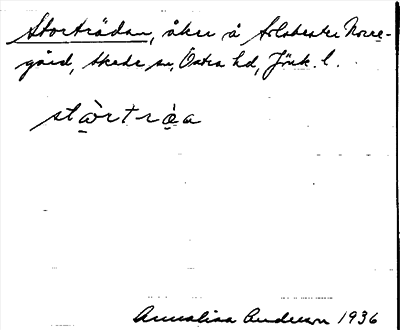 Storträdan, åker å Norre-
gård, Skede sn, Östra hd, Jönk. l.
stårtrèa
Annalisa Anderson 1936